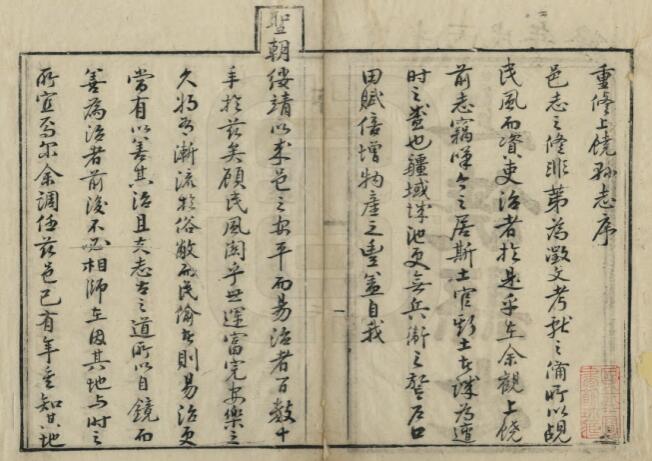 重修上饒縣志序
邑志之修非第為徵文考獻之備所以覘
民風而資吏治者於是乎在余觀上饒
前志竊嘆今之居斯土官斯土者誠為遭
時之盛也疆域城池更無兵衝之警戶口
田賦倍增物產之豐蓋自我
聖朝綏靖以來邑之安平而易治者百數十
手於茲矣顧民風關乎世運富完安樂之
久將有漸流於俗敝而民偷者則易治更
當有以善其治且夫志古之道所以自鏡而
善為治者前後不必相師在因其地與時之
所宜焉尔余調任茲邑已有年矣知其地